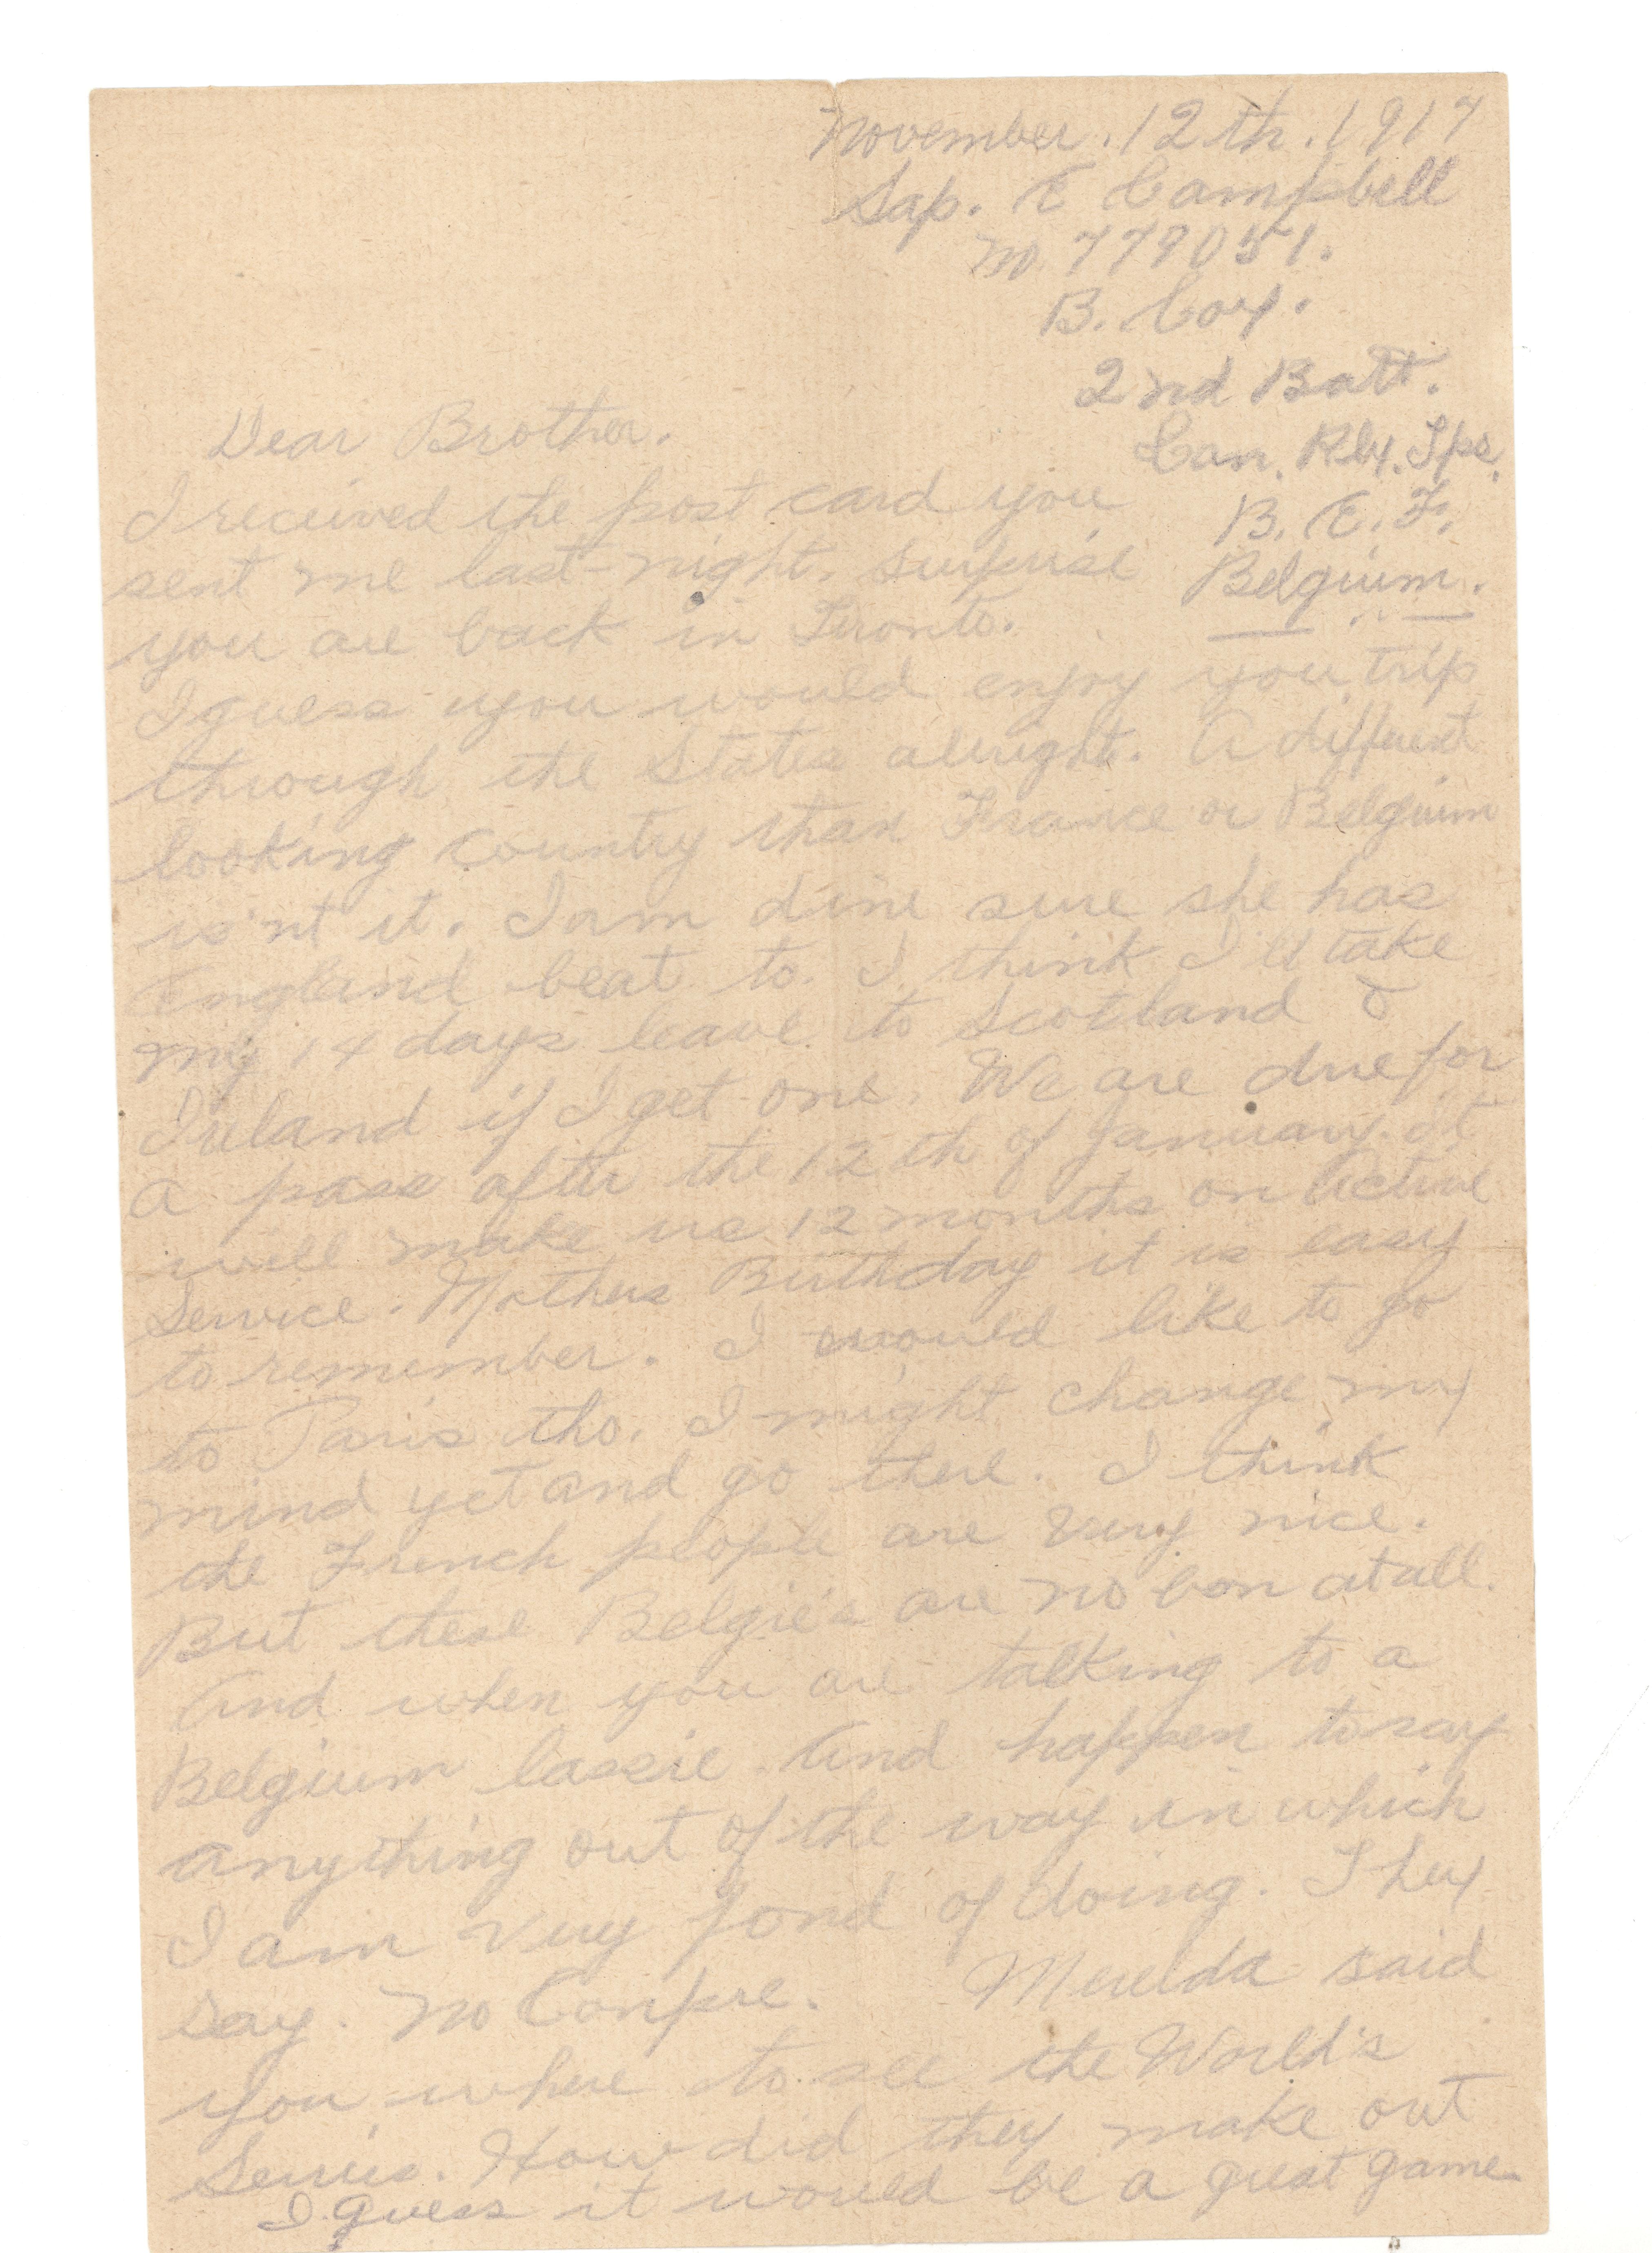 November. 12th. 1917
Sap. E Campbell
No 779051.
B. Coy.
2nd Batt.
Can. Rly. Tps.
B. E. F.
Belgium.
Dear Brother.
I received the post card you
sent me last-night. surprise
you are back in Toronto.
I guess you would enjoy you trip
through the States alright. A different
looking country than France or Belgium
is'nt it. I am sure she has
England beat to. I think I'll take
my 14 days leave to Scotland &
Ireland if I get one. We are due for
a pass after the 12th of January. It
will make us 12 months on Active
Service. Mothers Birthday it is easy
to remember. I would like to go
to Paris tho. I might change my
mind yet and go there. I think
the French people are very nice.
But these Belgie's are no bon at all.
And when you are talking to a
Belgium lassie. And happen to say
anything out of the way in which
I am very fond of doing. They
say. No Conpre. Merelda said
you where to see the World's
Series. How did they make out
I guess it would be a great game